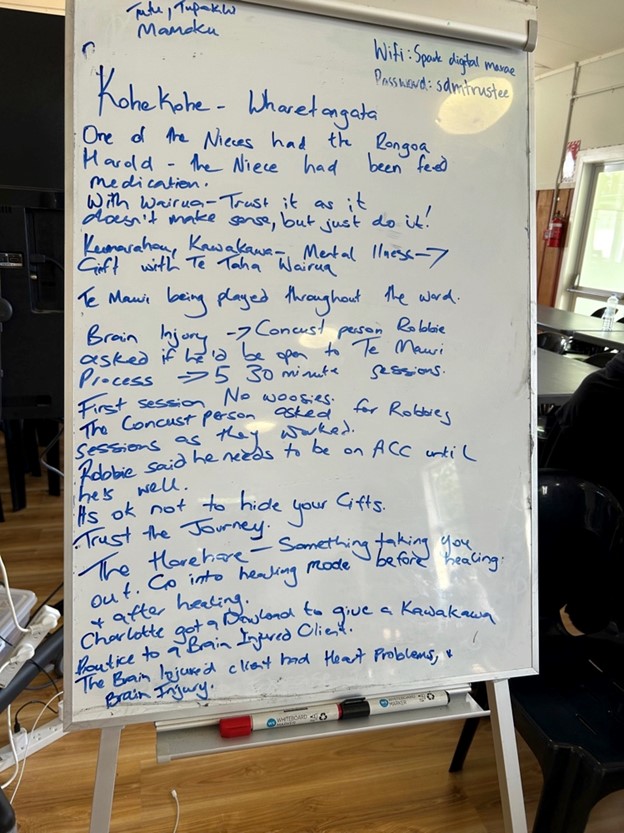 Tutu, Tupakihi
Mamaku
Wifi: Spark digital marae
Password: sdmtrustee
KoheKohe - Wharetangata
One of the Nieces had the Rongoa
Harold - the Niece had been feed
medication.
With Wairua - Trust it as it
doesn't make sense, but just do it!
Kumarahou, Kawakawa - Mental Illness →
Gift with Te Taha Wairua
Te Mauri being played throughout the word.
Brain Injury → Concust person Robbie
asked if he'd be open to Te Mauri
Process ⇒ 5 30 minute sessions.
First session No woosies.
The Concust person asked for Robbies
sessions as they worked.
Robbie said he needs to be on ACC until
he's well.
Its ok not to hide your Gifts.
Trust the Journey.
The Horehore - Something taking you
out. Go into healing mode before healing.
+ after healing.
Charlotte got a Download to give a Kawakawa
Poutice to a Brain Injured Client.
The Brain Injured client had Heart Problems, +
Brain Injury.
WHITEBOARD MARKER
WHITEBOARD MARKER